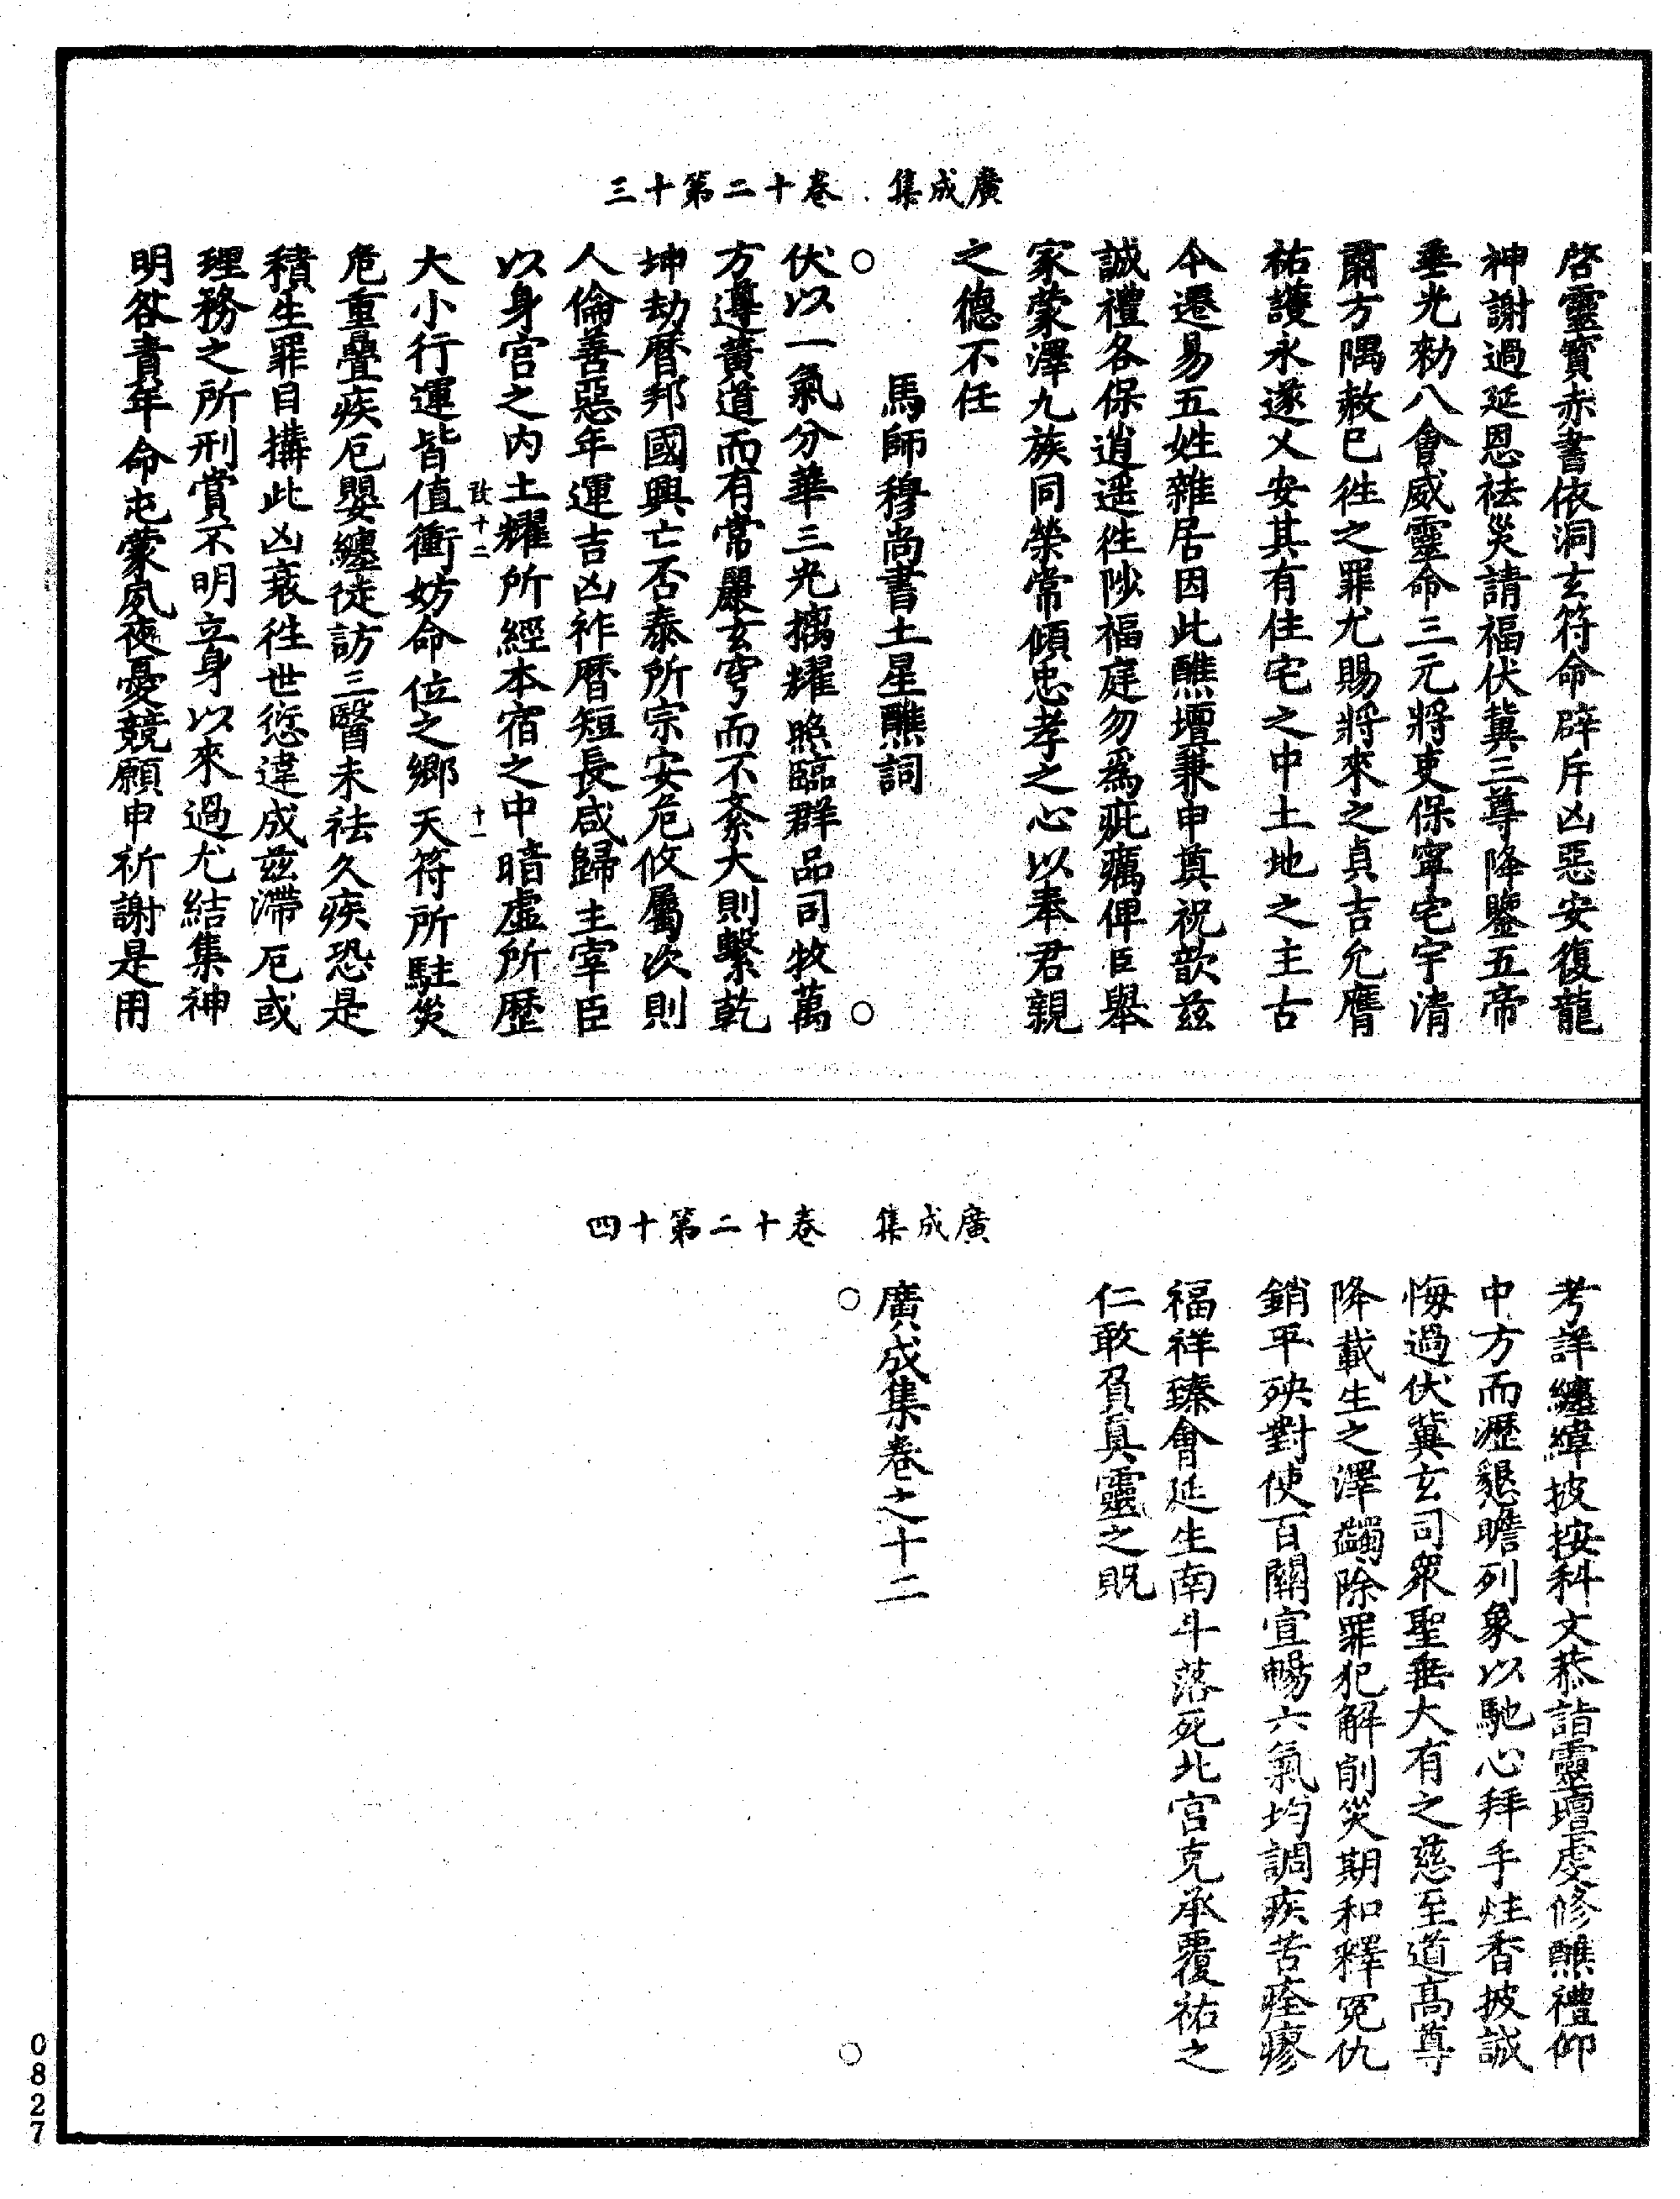 廣成集　卷十二第十三
啓靈寶赤書依洞玄符命辟斥凶惡安復龍
神謝過延恩祛災請福伏冀三尊降鑒五帝
垂光勑八會威靈命三元將吏保寧宅宇清
肅方隅赦已徃之罪尤賜將來之貞吉允膺
祐護永遂乂安其有住宅之中土地之主古
今遷易五姓雜居因此醮壇兼申奠祝歆兹
誠禮各保逍遥徃陟福庭勿爲疵癘俾臣舉
家蒙澤九族同榮常傾忠孝之心以奉君親
之德不任
馬師穆尚書土星醮詞
伏以一氣分華三光摛耀照臨群品司牧萬
方遵黃道而有常麗玄穹而不紊大則繫乾
坤劫曆邦國興亡否泰所宗安危攸屬次則
人倫善惡年運吉凶祚曆短長咸歸主宰臣
以身宫之内土耀所經本宿之中暗虛所歷
十二
十一
大小行運皆值衝妨命位之鄉天符所駐災
危重疊疾厄嬰纏徒訪三醫未祛久疾恐是
積生罪目搆此凶衰徃世愆違成兹滯厄或
理務之所刑賞不明立身以來過尤結集神
明咎責年命屯蒙夙夜憂競願申祈謝是用
廣成集　卷十二第十四
考詳纏緯披按科文恭詣靈壇虔修醮禮仰
中方而瀝懇瞻列象以馳心拜手炷香披誠
悔過伏冀玄司衆聖垂大有之慈至道高尊
降載生之澤蠲除罪犯解削災期和釋冤仇
銷平殃對使百關宣暢六氣均調疾苦痊瘳
福祥臻會延生南斗落死北宫克承覆祐之
仁敢負真靈之貺
廣成集卷之十二
0827